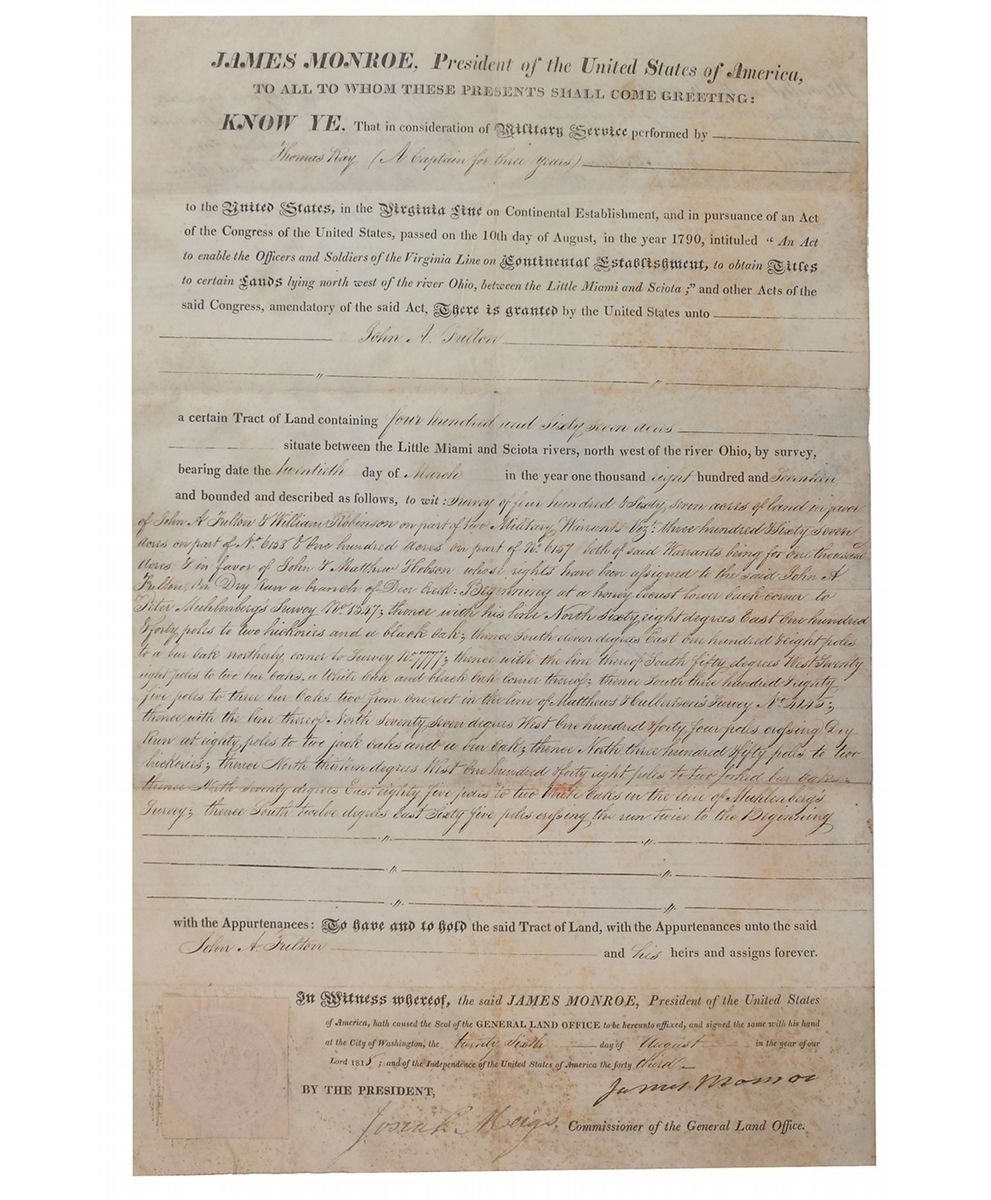 JAMES MONROE, President of the United States of America,
TO ALL TO WHOM THESE PRESENTS SHALL COME GREETING:
KNOW YE. That in consideration of Military Service performed by
Thomas Ray (A Captain for three years)
to the United States, in the Virginia Line on Continental Establishment, and in pursuance of an Act
of the Congress of the United States, passed on the 10th day of August, in the year 1790, intituled "An Act
to enable the Officers and Soldiers of the Virginia Line on Continental Establishment, to obtain Titles
to certain Lands lying north west of the river Ohio, between the Little Miami and Sciota;" and other Acts of the
said Congress, amendatory of the said Act, There is granted by the United States unto
John A. Fulton
a certain Tract of Land containing four hundred and Sixty seven acres
situate between the Little Miami and Sciota rivers, north west of the river Ohio, by survey,
bearing date the twentieth day of March in the year one thousand eight hundred and Seventeen
and bounded and described as follows, to wit: Survey of four hundred & Sixty seven acres of land in favor
of John A Fulton & William Robinson on part of two Military Warrants Vizt: three hundred & Sixty Seven
Acres on part of No. 6158 & One hundred Acres on part of No 6157 both of said Warrants being for One thousand
Acres & in favor of John & Matthew Hobson whose rights have been assigned to the said John A
Fulton, on Dry Run a branch of Deer Creek: Beginning at a honey locust lower back corner to
Peter Muhlenberg's Survey No. 1347; thence with his line North Sixty eight degrees East One hundred
& forty poles to two hickories and a black Oak; thence South eleven degrees East One hundred & eight poles
to a bur oak northerly corner to Survey No. 7777; thence with the line thereof South fifty degrees West Twenty
eight poles to two bur oaks, a white Oak and black Oak corner thereof; thence South three hundred & eighty
five poles to three bur Oaks two from one root in the line of Matthews & Cullertson's Survey No. 4145;
thence with the line thereof North Seventy Seven degrees West One hundred & forty four poles crossing Dry
Run at eighty poles to two jack oaks and a bur Oak; thence North three hundred & fifty poles to two
hickories; thence North thirteen degrees West One hundred & forty eight poles to two forked bur oaks;
thence North Seventy degrees East eighty five poles to two White Oaks in the line of Muhlenberg's
Survey; thence South twelve degrees East Sixty five poles crossing the run twice to the Beginning
with the Appurtenances: To have and to hold the said Tract of Land, with the Appurtenances unto the said
John A. Fulton and his heirs and assigns forever.
In Witness whereof, the said JAMES MONROE, President of the United States
of America, hath caused the Seal of the GENERAL LAND OFFICE to be hereunto affixed, and signed the same with his hand
at the City of Washington, the twenty Sixth day of August in the year of our
Lord 1818; and of the Independence of the United States of America the forty third
BY THE PRESIDENT, James Monroe
Josiah Meigs Commissioner of the General Land Office.